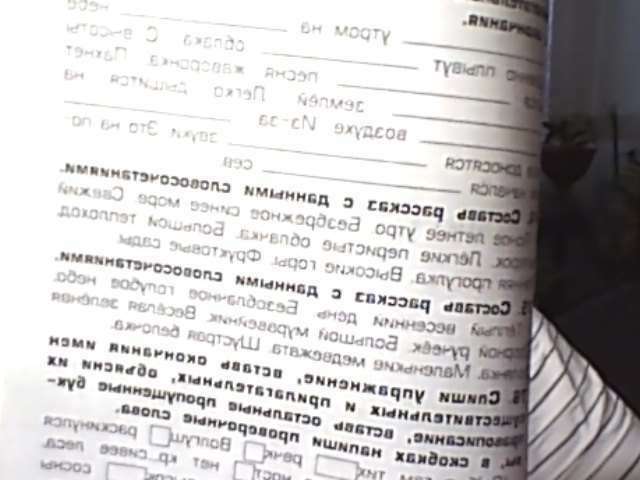 окончания.
утром на ___ небе
плывут ___ облака. С высоты
___ песня жаворонка. Пахнет
___ землёй. Легко дышится на
___ воздухе. Из-за ___
доносятся ___ звуки. Это на по-
начался ___ сев.
Составь рассказ с данными словосочетаниями.
Ясное летнее утро. Безбрежное синее море. Свежий
Лёгкие перистые облачка. Большой теплоход.
прогулка. Высокие горы. Фруктовые сады.
Составь рассказ с данными словосочетаниями.
Тёплый весенний день. Безоблачное голубое небо.
ручеёк. Большой муравейник. Весёлая зелёная
полянка. Маленькие медвежата. Шустрая белочка.
76. Спиши упражнение, вставь окончания имен
существительных и прилагательных, объясни их
правописание, вставь остальные пропущенные бук-
вы, в скобках напиши проверочные слова.
тих□ речк□ Волгуш□ раскинулся
нет кр..сивее леса.
сосны